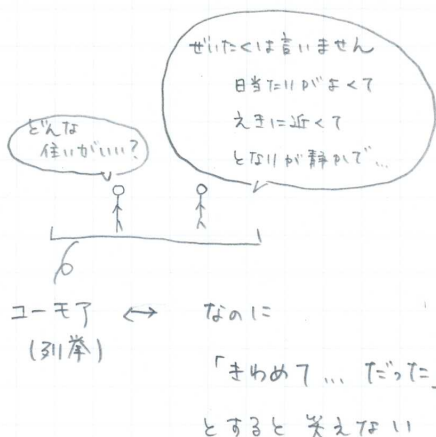 どんな
住いがいい?
ぜいたくは言いません
日当たりがよくて
えきに近くて
となりが静かで...
ユーモア ↔ なのに
(列挙)
「きわめて... だった」
とすると 笑えない